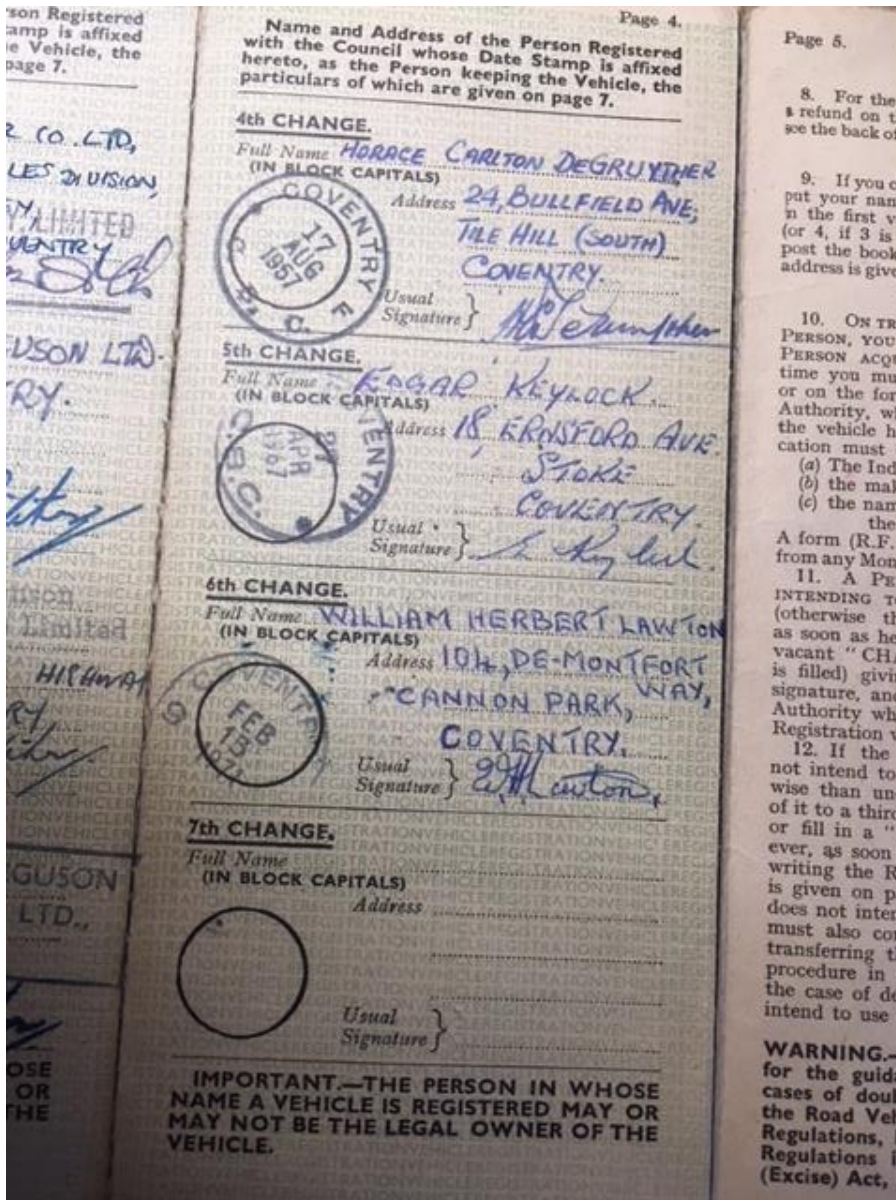 son Registered
amp is affixed
e Vehicle, the
page 7.
R CO. LTD,
LES DIVISION,
Y, LIMITED
VENTRY
GUSON LTD.
RY.
Limited
HIGHWAY
RY,
GUSON
LTD.,
OSE
OR
THE
Page 4.
Name and Address of the Person Registered
with the Council whose Date Stamp is affixed
hereto, as the Person keeping the Vehicle, the
particulars of which are given on page 7.
4th CHANGE.
Full Name HORACE CARLTON DEGRUYTHER
(IN BLOCK CAPITALS)
Address 24, BULLFIELD AVE;
TILE HILL (SOUTH)
COVENTRY.
COVENTRY F
17
AUG
1957
C. B. C.
Usual
Signature
5th CHANGE.
Full Name EDGAR KEYLOCK.
(IN BLOCK CAPITALS)
Address 18, ERNSFORD AVE.
STOKE
COVENTRY.
VENTRY
APR
1967
C.B.C.
Usual
Signature E Keylock.
6th CHANGE.
Full Name WILLIAM HERBERT LAWTON
(IN BLOCK CAPITALS)
Address 104, DE-MONTFORT
WAY,
CANNON PARK,
COVENTRY.
COVENTRY
FEB
13
1971
Usual
Signature WHLawton,
7th CHANGE.
Full Name
(IN BLOCK CAPITALS)
Address
Usual
Signature
IMPORTANT.—THE PERSON IN WHOSE
NAME A VEHICLE IS REGISTERED MAY OR
MAY NOT BE THE LEGAL OWNER OF THE
VEHICLE.
Page 5.
8. For the
a refund on t
see the back of
9. If you c
put your nan
in the first v
(or 4, if 3 is
post the book
address is give
10. ON TR
PERSON, YOU
PERSON ACQU
time you mu
or on the for
Authority, wh
the vehicle h
cation must
(a) The Ind
(b) the mak
(c) the nam
the
A form (R.F.
from any Mon
11. A PE
INTENDING TO
(otherwise th
as soon as he
vacant "CHA
is filled) givi
signature, and
Authority wh
Registration v
12. If the
not intend to
wise than un
of it to a third
or fill in a
ever, as soon
writing the R
is given on p
does not inter
must also cor
transferring th
procedure in
the case of de
intend to use
WARNING.—
for the guida
cases of doub
the Road Veh
Regulations,
Regulations i
(Excise) Act,